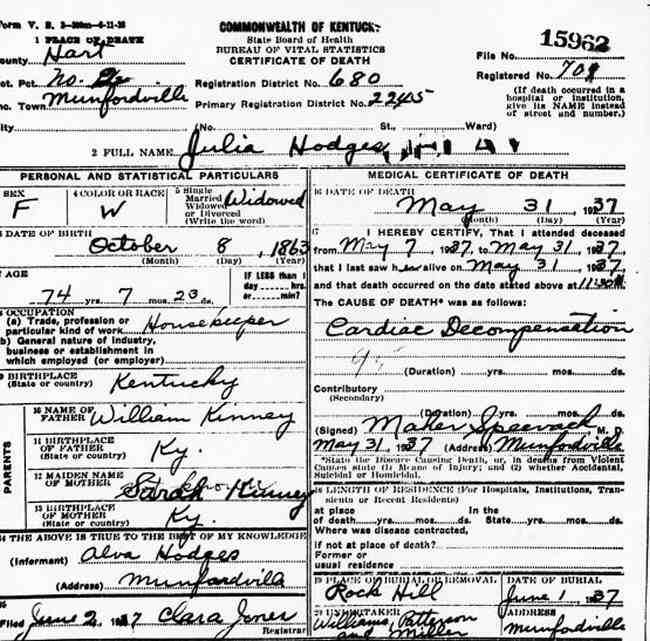 Form V. S.
COMMONWEALTH OF KENTUCKY
State Board of Health
BUREAU OF VITAL STATISTICS
CERTIFICATE OF DEATH
1 PLACE OF DEATH
ounty Hart
File No. 15962
ot. Pct. No. 2
Registration District No. 680
Registered No. 708
nc. Town Munfordville
Primary Registration District No. 2245
(If death occurred in a hospital or institution, give its NAME instead of street and number.)
ity (No. St., Ward)
2 FULL NAME Julia Hodges
PERSONAL AND STATISTICAL PARTICULARS
SEX F
4 COLOR OR RACE W
5 Single Married Widowed or Divorced (Write the word) Widowed
DATE OF BIRTH October 8, 1863
(Month) (Day) (Year)
AGE 74 yrs. 7 mos. 23 ds.
IF LESS than 1 day hrs. or min?
OCCUPATION
(a) Trade, profession or particular kind of work Housekeeper
b) General nature of industry, business or establishment in which employed (or employer)
BIRTHPLACE (State or country) Kentucky
PARENTS
10 NAME OF FATHER William Kinney
11 BIRTHPLACE OF FATHER (State or country) Ky.
12 MAIDEN NAME OF MOTHER Sarah Kinney
13 BIRTHPLACE OF MOTHER (State or country) Ky.
THE ABOVE IS TRUE TO THE BEST OF MY KNOWLEDGE
(Informant) Alva Hodges
(Address) Munfordville
Filed June 2, 1937 Clara Joner
Registrar
MEDICAL CERTIFICATE OF DEATH
16 DATE OF DEATH
May 31, 1937
(Month) (Day) (Year)
17 I HEREBY CERTIFY, That I attended deceased
from May 7 1937, to May 31, 1937,
that I last saw her alive on May 31 1937,
and that death occurred on the date stated above at 11:30
The CAUSE OF DEATH* was as follows:
Cardiac Decompensation
95
(Duration) yrs. mos. ds.
Contributory
(Secondary)
(Duration) yrs. mos. ds.
(Signed) Maher Speevack, M. D.
May 31, 1937 (Address) Munfordville
*State the Disease Causing Death, or, in deaths from Violent
Causes state (1) Means of Injury; and (2) whether Accidental,
Suicidal or Homicidal.
18 LENGTH OF RESIDENCE (For Hospitals, Institutions, Tran-
sients or Recent Residents)
at place In the
of death yrs. mos. ds. State yrs. mos. ds.
Where was disease contracted,
if not at place of death?
Former or
usual residence
19 PLACE OF BURIAL OR REMOVAL Rock Hill
DATE OF BURIAL June 1, 1937
20 UNDERTAKER Williams, Patterson and Miller
ADDRESS Munfordville